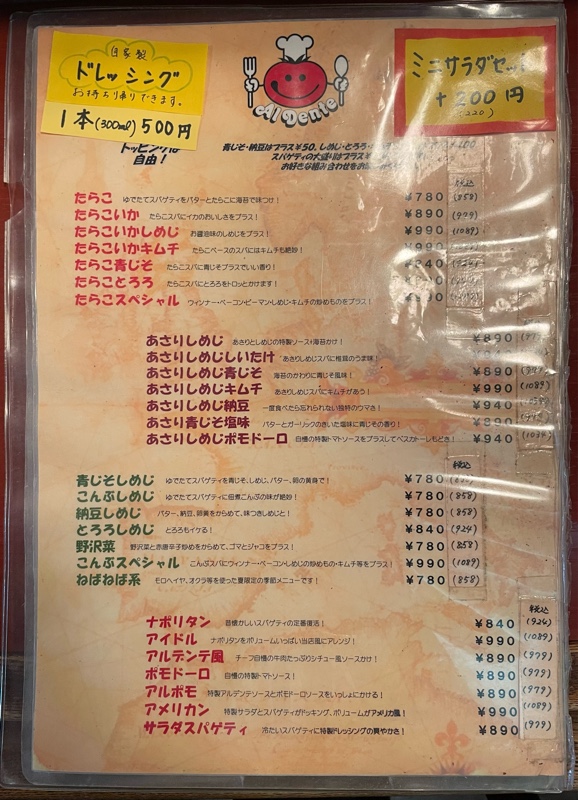 自家製
ドレッシング
お持ち帰りできます。
1本(300ml)500円
Al Dente
ミニサラダセット
+200円
(220)
トッピングは
自由！
青じそ・納豆はプラス¥50、しめじ・とろろ・
スパゲティの大盛りはプラス
お好きな組み合わせをお
税込
たらこ ゆでたてスパゲティをバターとたらこに海苔で味つけ！ ¥780 (858)
たらこいか たらこスパにイカのおいしさをプラス！ ¥890 (979)
たらこいかしめじ お醤油味のしめじをプラス！ ¥990 (1089)
たらこいかキムチ たらこベースのスパにはキムチも絶妙！ ¥990
たらこ青じそ たらこスパに青じそプラスでいい香り！ ¥840
たらことろろ たらこスパにとろろをトロッとかけます！
たらこスペシャル ウィンナー・ベーコン・ピーマン・しめじ・キムチの炒めものをプラス！
あさりしめじ あさりとしめじの特製ソース+海苔かけ！ ¥890
あさりしめじしいたけ あさりしめじスパに椎茸のうま味！
あさりしめじ青じそ 海苔のかわりに青じそ風味！ ¥890
あさりしめじキムチ あさりしめじスパにキムチがあう！ ¥990 (1089)
あさりしめじ納豆 一度食べたら忘れられない独特のウマさ！ ¥940
あさり青じそ塩味 バターとガーリックのきいた塩味に青じその香り！ ¥890
あさりしめじポモドーロ 自慢の特製トマトソースをプラスしてベスカトーレもどき！ ¥940
税込
青じそしめじ ゆでたてスパゲティを青じそ、しめじ、バター、卵の黄身で！ ¥780
こんぶしめじ ゆでたてスパゲティに佃煮こんぶの味が絶妙！ ¥780 (858)
納豆しめじ バター、納豆、卵黄をからめて、味つきしめじと！ ¥780 (858)
とろろしめじ とろろもイケる！ ¥840 (924)
野沢菜 野沢菜と赤唐辛子炒めをからめて、ゴマとジャコをプラス！ ¥780 (858)
こんぶスペシャル こんぶスパにウィンナー・ベーコン・しめじの炒めもの・キムチ等をプラス！ ¥990 (1089)
ねばねば系 モロヘイヤ、オクラ等を使った夏限定の季節メニューです！ ¥780 (858)
税込
ナポリタン 昔懐かしいスパゲティの定番復活！ ¥840 (924)
アイドル ナポリタンをボリュームいっぱい当店風にアレンジ！ ¥990 (1089)
アルデンテ風 チーフ自慢の牛肉たっぷりシチュー風ソースかけ！ ¥890 (979)
ポモドーロ 自慢の特製トマトソース！ ¥890 (979)
アルポモ 特製アルデンテソースとポモドーロソースをいっしょにかける！ ¥890 (979)
アメリカン 特製サラダとスパゲティがドッキング、ボリュームがアメリカ風！ ¥990 (1089)
サラダスパゲティ 冷たいスパゲティに特製ドレッシングの爽やかさ！ ¥890 (979)